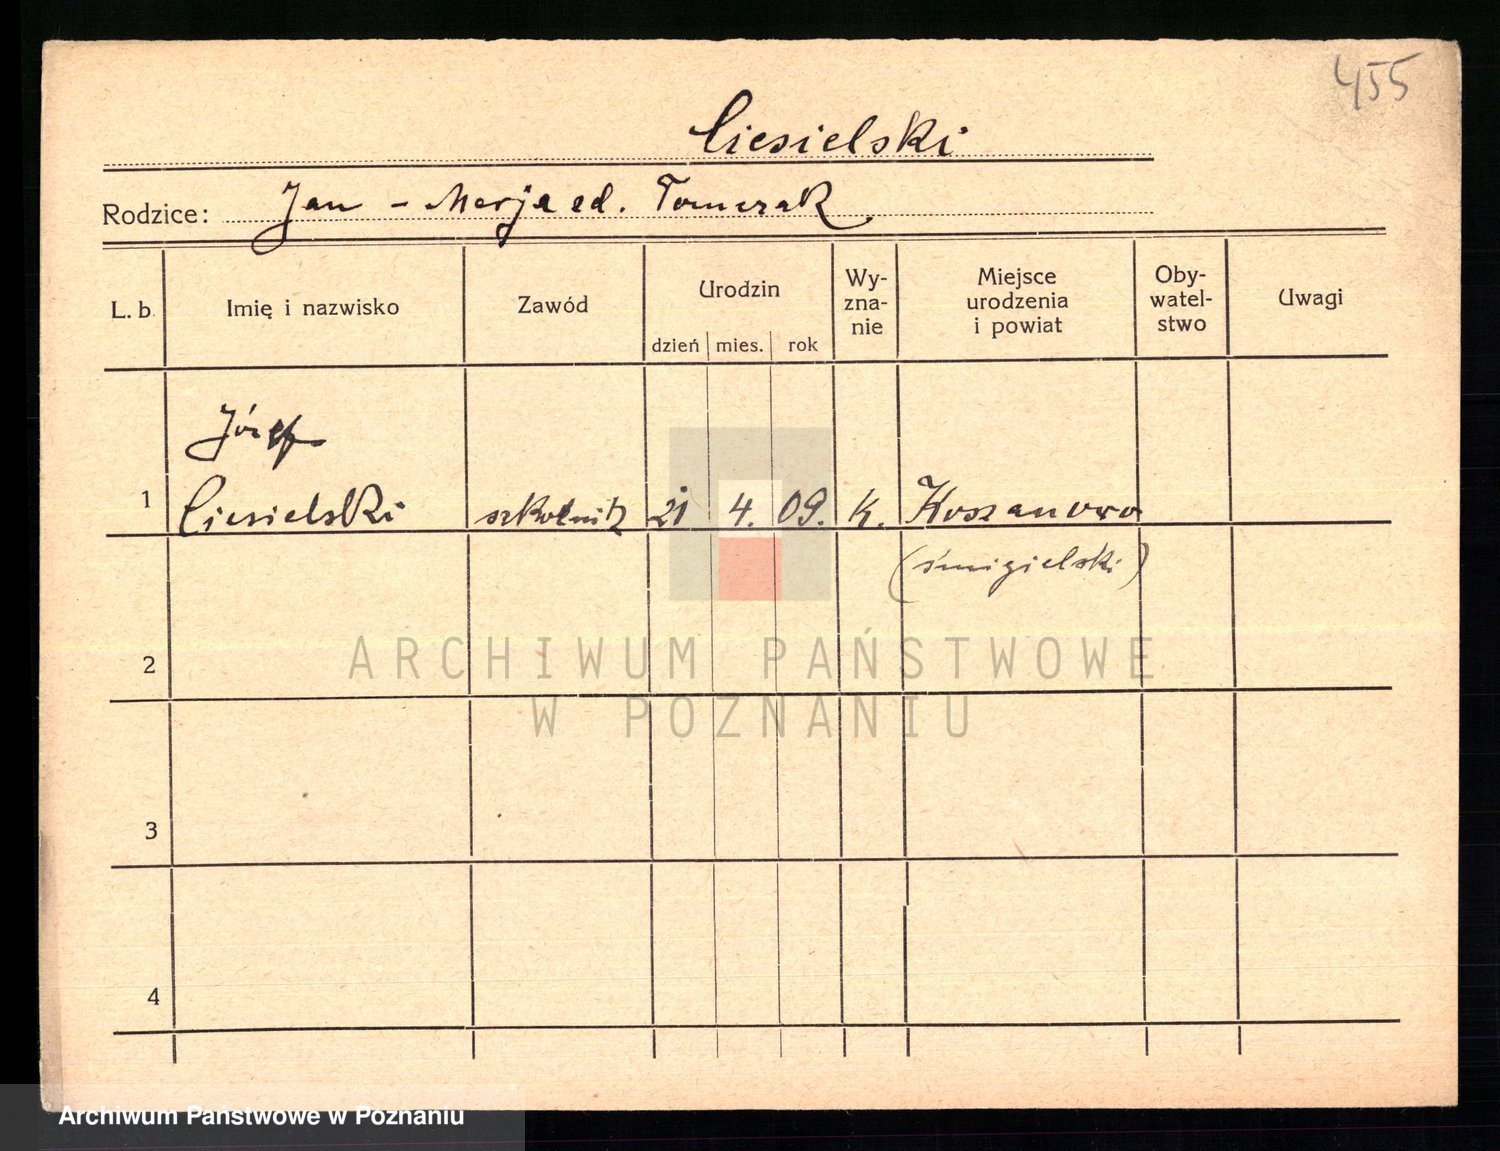 455
Ciesielski
Rodzice: Jan - Marja ed. Tomczak
L. b. Imię i nazwisko Zawód Urodzin dzień mies. rok Wy-zna-nie Miejsce urodzenia i powiat Oby-watel-stwo Uwagi
Józef
1 Ciesielski szkolnik 21 4. 09. k. Koszanowo
(śmigielski)
2
ARCHIWUM PAŃSTWOWE
W POZNANIU
3
4
Archiwum Państwowe w Poznaniu